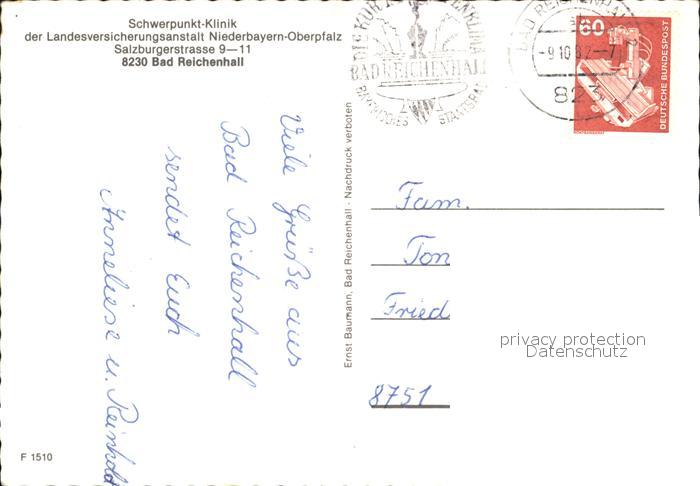 Schwerpunkt-Klinik
der Landesversicherungsanstalt Niederbayern-Oberpfalz
Salzburgerstrasse 9—11
8230 Bad Reichenhall
BAD REICHENHALL
BAYERISCHES STAATSBAD
BAD REICHENHALL
-9.10.
823
60
DEUTSCHE BUNDESPOST
Viele Grüße aus
Bad Reichenhall
sendet Euch
Anneliese u. Reinhold
Ernst Baumann, Bad Reichenhall · Nachdruck verboten
Fam.
Ton
Fried
8751
privacy protection
Datenschutz
F 1510